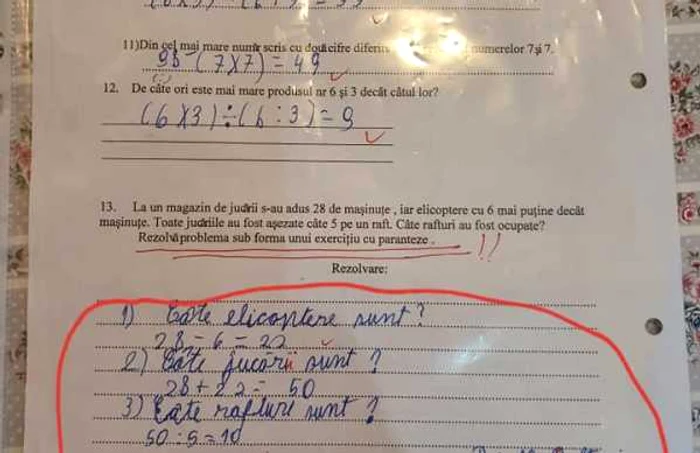 11)Din cel mai mare număr scris cu două cifre numerelor 7și 7.
98 - (7 X 7) = 49
12. De câte ori este mai mare produsul nr 6 și 3 decât câtul lor?
(6 X 3) : (6 : 3) = 9
13. La un magazin de judării s-au adus 28 de mașinuțe , iar elicoptere cu 6 mai puține decât
mașinuțe. Toate judriile au fost așezate câte 5 pe un raft. Câte rafturi au fost ocupate?
Rezolvă problema sub forma unui exercițiu cu paranteze .
!!
Rezolvare:
1) Câte elicoptere sunt?
28 - 6 = 22
2) Câte jucării sunt ?
28 + 22 = 50
3) Câte rafturi sunt ?
50 : 5 = 10